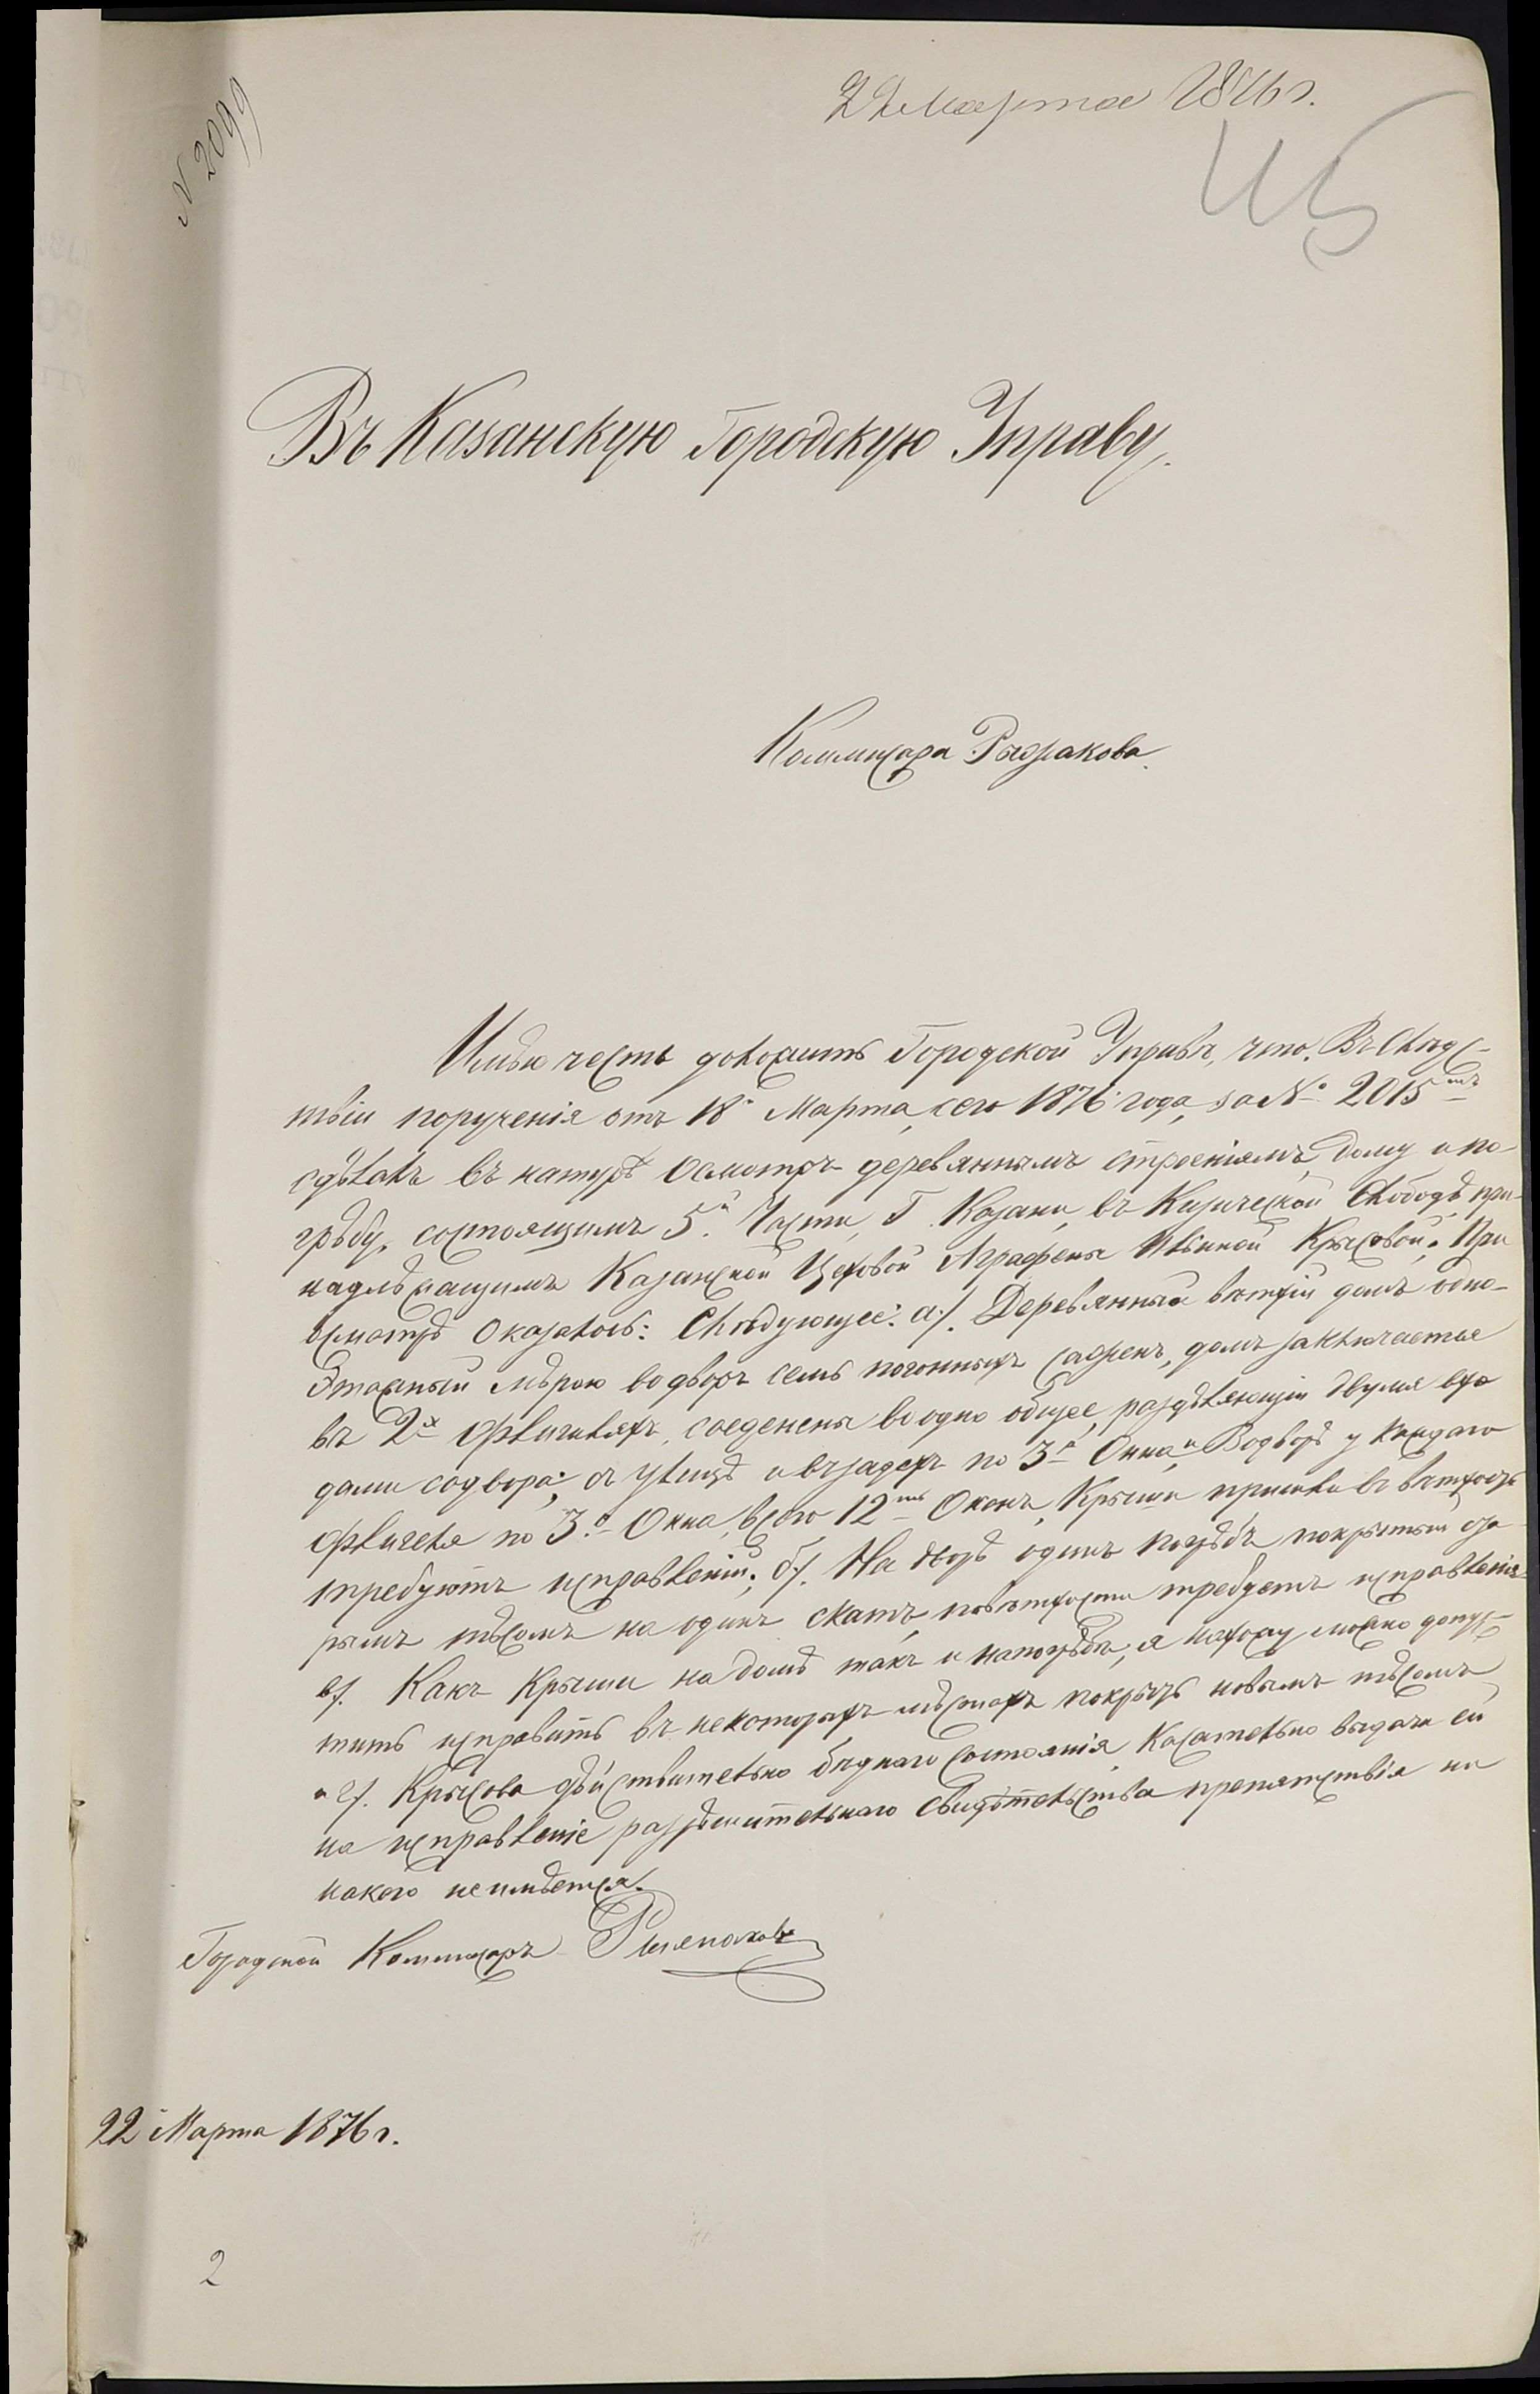 22 Марта 1876 г.
N 2099
Въ Казанскую Городскую Управу.
Коммисара
Имѣю честь доложить Городской Управѣ, что. Въ Слѣдс-
твіи порученія отъ 18го Марта, сего 1876 года, за № 2015мъ
сдѣлалъ въ натурѣ Осмотръ деревяннымъ строеніямъ, дому и по-
гребу, состоящимъ 5й Части, Г. Казани, въ Кизической Слободѣ, при-
надлѣжащимъ Казанской Цеховой Аграфены Крысовой; При
осмотрѣ Оказалось: Слѣдующее: а). Деревянный ветхій домъ одно-
Этажный мѣрою во дворъ семь погонныхъ саженъ, домъ заключается
въ 2х Флигиляхъ, соеденены во одно общее, раздѣляющіи двумя вхо
дами со двора; съ улицѣ и въ задехъ по 3и Окна, и Во дворѣ у каждаго
Флигеля по 3и Окна, всего 12ть Оконъ, Крыши пришли въ ветхость
требуютъ исправленій; б). На дворѣ одинъ погрѣбъ покрытый ста
рымъ тѣсомъ на одинъ скатъ, по ветхости требуетъ исправленія
в). Какъ Крыши на домѣ такъ и на погрѣбѣ, я нахожу можно допус-
тить исправить въ некоторыхъ мѣстахъ покрыть новымъ тѣсомъ
и г). Крысова дѣйствительно бѣднаго состоянія, Касательно выдачи ей
на исправленіе разрѣшительнаго Свидѣтельства препятствія ни
какого не имѣется.
Городской Коммисаръ
22 Марта 1876 г.
2